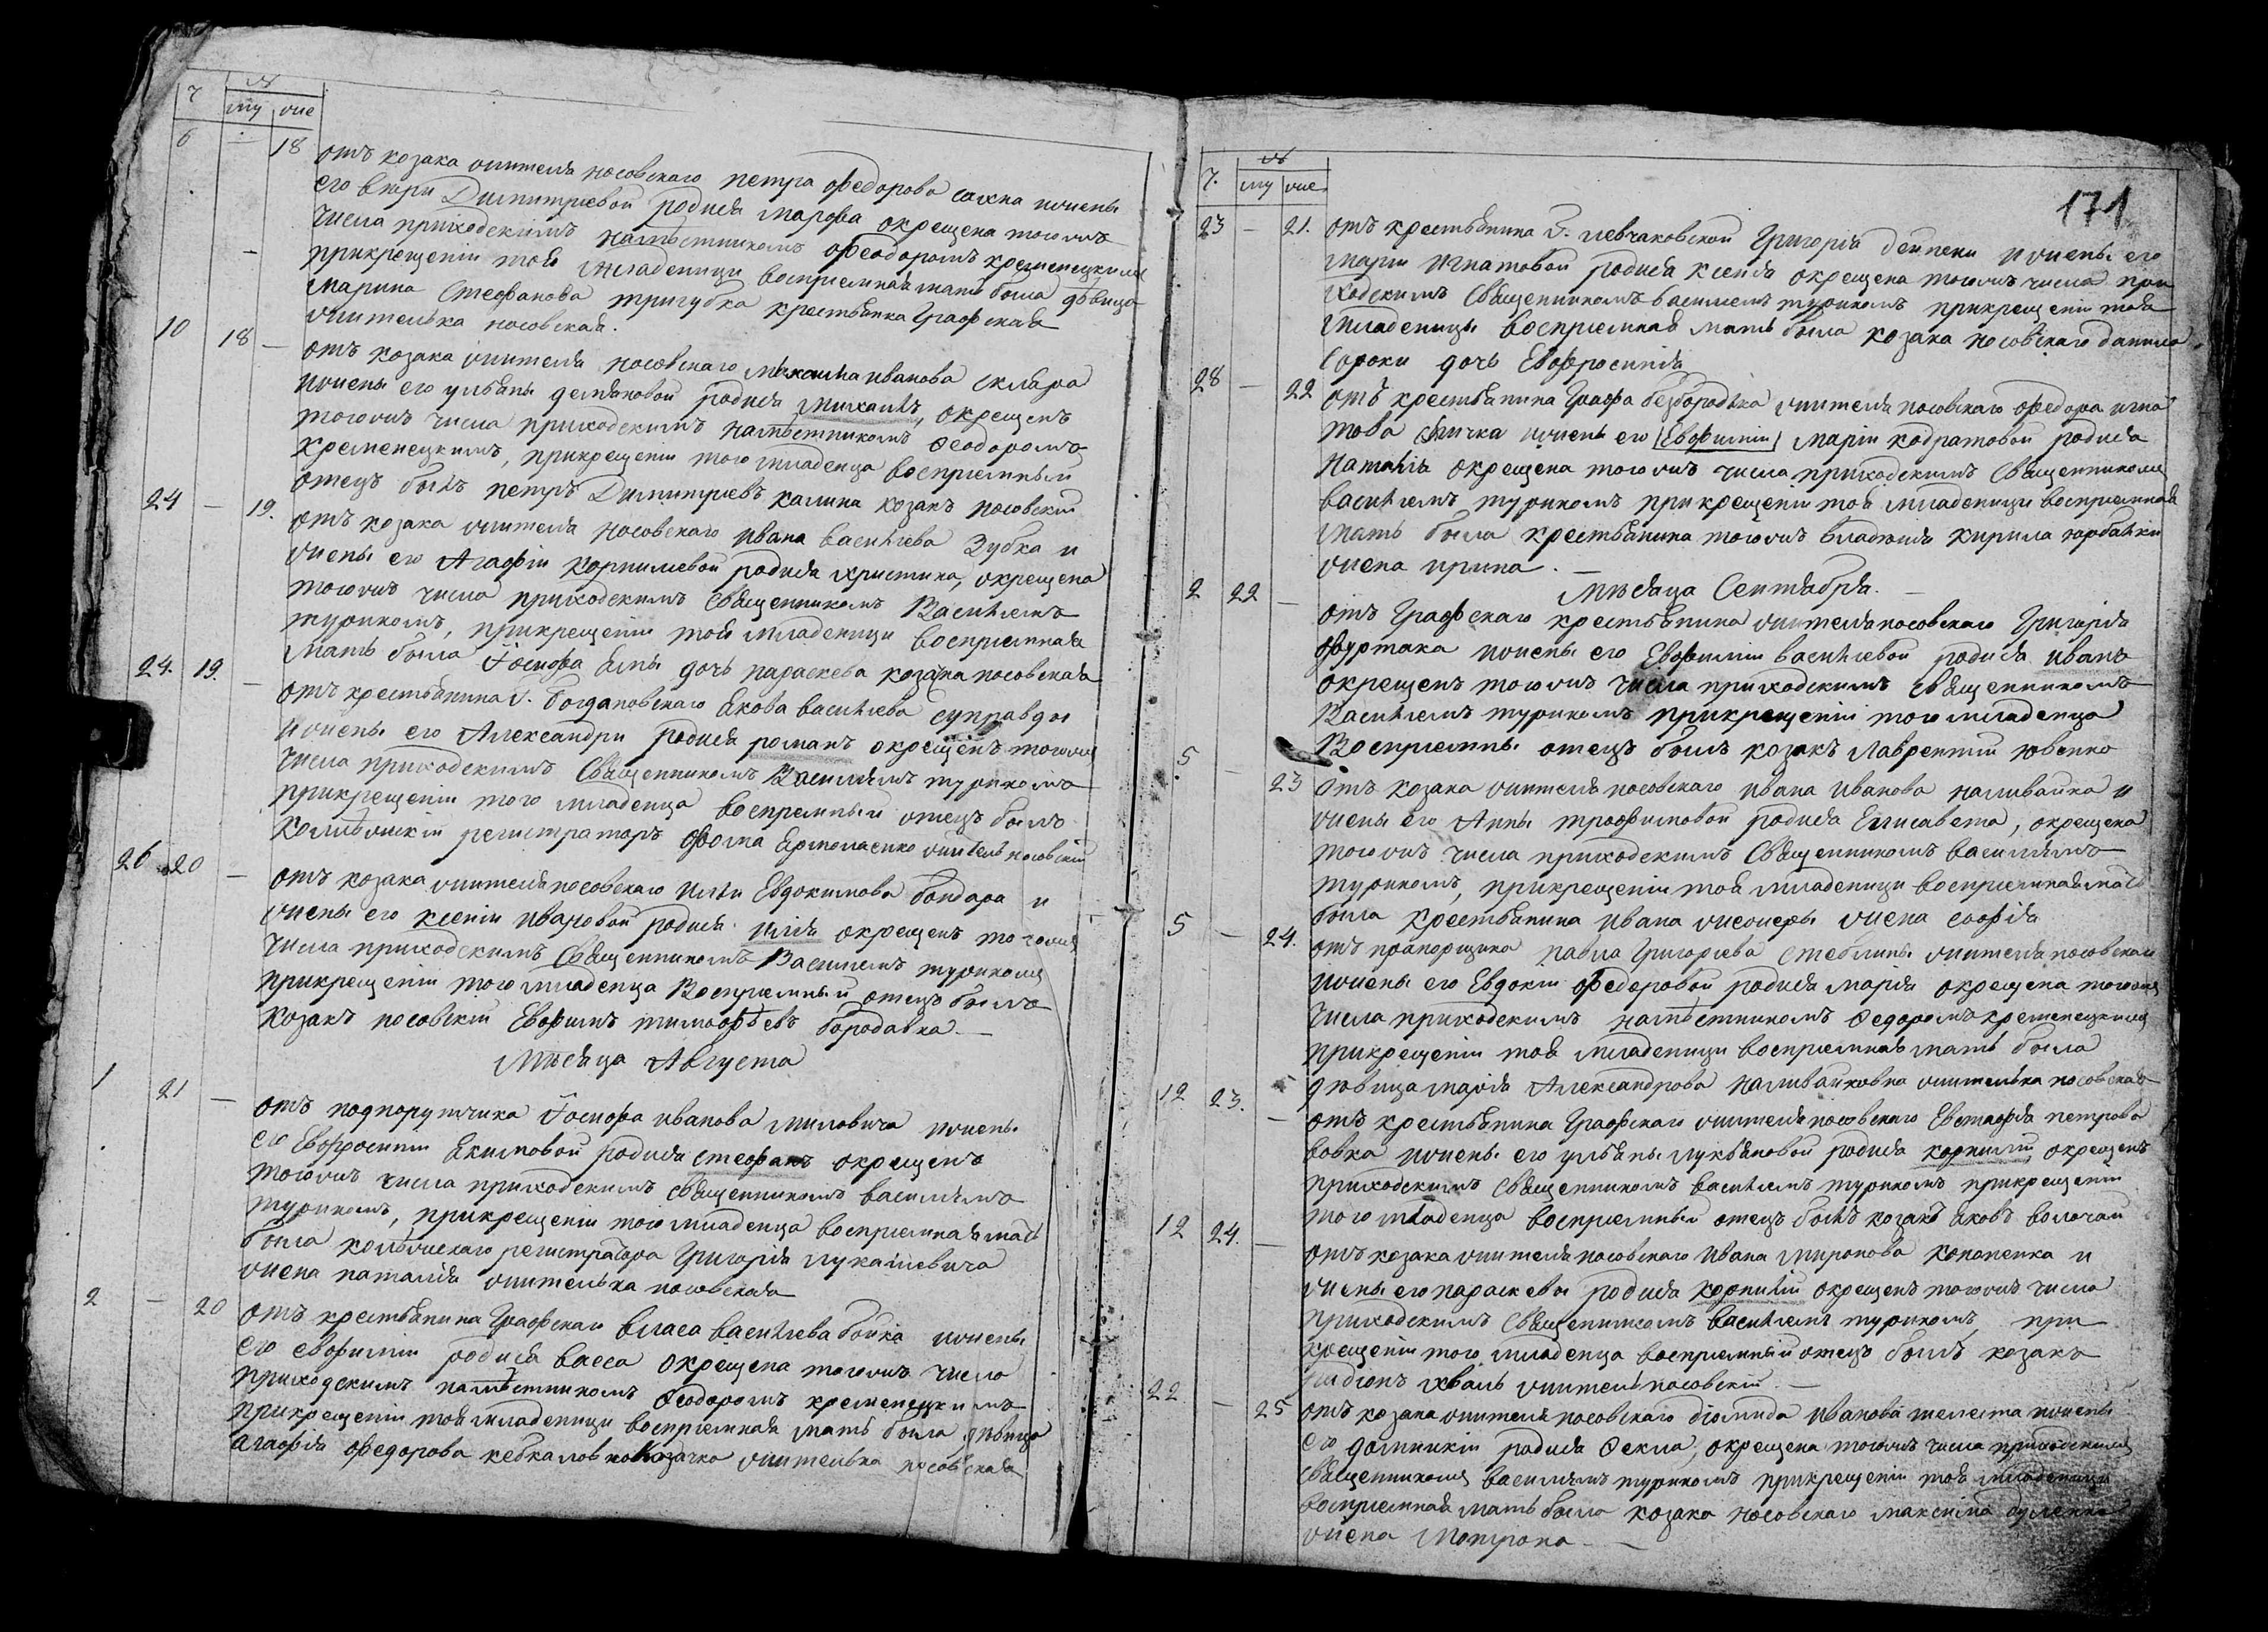 Ч № му же
6 — 18 отъ козака жителя носовского петра федорова сахна ижены
его вюри Димитриевой родися марфа окрещена тогожъ
числа приходскимъ намѣстникомъ феодоромъ кременецкимъ
прикрещеніи тоя младеницы воспріемная мать была дѣвица
марина Стефанова тригубка крестьянка Графская
жителька носовская.
10 18 — отъ козака жителя носовскаго михаила иванова скляра
ижены его ульяны демяновой родися михаилъ, окрещенъ
тогожъ числа приходскимъ намѣстникомъ Феодоромъ
кременецкимъ, прикрещеніи того младенца воспріемный
отецъ былъ петръ Димитріевъ калина козакъ носовскій
24 — 19. отъ козака жителя носовскаго ивана василіева Зубка и
жены его Агафіи корнилиевой родися христина, окрещена
тогожъ числа приходскимъ священникомъ Василіемъ
туникомъ, прикрещеніи тоя младеницы воспріемная
мать была Іосифа дочь параскева козачка носовская
24. 19. — отъ крестьянина богдановскаго якова василіева суправды
ижены его Александры родися романъ окрещенъ тогожъ
числа приходскимъ Священникомъ Василіемъ туникомъ
прикрещеніи того младенца воспріемный отецъ былъ
колѣжскій регистраторъ фома Ермолаенко житель носовскій
26 20 — отъ козака жителя носовского иліи Евдокимова бондара и
жены его ксеніи ивановой родися илія окрещенъ тогожъ
числа приходскимъ Священникомъ Василіемъ туникомъ
прикрещеніи того младенца Воспріемный отецъ былъ
козакъ носовскій Евфимъ тимофѣевъ бородавка. —
Мѣсяца Августа
1 21 — отъ подпорутчика Іосифа иванова миловича ижены
его Евфросиніи якимовой родися стефанъ окрещенъ
тогожъ числа приходскимъ священникомъ василіемъ
туникомъ, прикрещеніи того младенца воспріемная мать
была колѣжскаго регистратора Григорія лукашевича
жена наталія жителька носовская
2 — 20 отъ крестьянина Графскаго власа василіева бойка ижены
его евфиміи родися васса окрещена тогожъ число
приходскимъ намѣстникомъ Феодоромъ кременецкимъ
прикрещеніи тоя младеницы воспріемная мать была дѣвица
агафія федорова кебкаловна козачка жителька носовская
171
Ч. № му же
23 — 21. отъ крестьянина Г. левчаковской Григорія дейнеки ижены его
маріи игнатовой родися ксенія окрещена тогожъ числа при
ходскимъ Священникомъ василіемъ туникомъ прикрещеніи тоя
младеницы воспріемная мать была козака носовскаго данила
Сороки дочь Евфросинія
28 — 22 отъ крестьянина Графа безбородка жителя носовского федора игна
това ижены его [Евфиміи] маріи кодратовой родися
наталія окрещена тогожъ числа приходскимъ Священникомъ
василіемъ туникомъ прикрещеніи тоя младеницы воспріемная
мать была крестьянина тогожъ владѣнія кирила горбатки
жена ирина. —
Мѣсяца Сентября. —
2 22 — отъ Графскаго крестьянина жителя носовскаго Григорія
фуртака ижены его Евфиміи василіевой родися иванъ
окрещенъ тогожъ числа приходскимъ священникомъ
Василіемъ туникомъ прикрещеніи того младенца
Воспріемный отецъ былъ козакъ лаврентій ювенко
5 — 23 отъ козака жителя носовскаго ивана иванова наливайка и
жены его Анны трофимовой родися Елисавета, окрещена
тогожъ числа приходскимъ Священникомъ василіемъ
туникомъ, прикрещеніи тоя младеницы воспріемная мать
была крестьянина ивана жена софія
5 — 24. отъ прапорщика павла Григорієва Стеблины жителя носовскаго
ижены его Евдокіи федоровой родися марія окрещена тогожъ
числа приходскимъ намѣстникомъ Федоромъ кременецкимъ
прикрещеніи тоя младеницы воспріемная мать была
дѣвица марія Александрова наливайковна жителька носовская
12 23. — отъ крестьянина Графскаго жителя носовскаго Евстафія петрова
вовка ижены его ульяны лукьяновой родися корнилій окрещенъ
приходскимъ священникомъ василіемъ туникомъ прикрещеніи
того младенца воспріемный отецъ былъ козакъ яковъ волочай
12 24. — отъ козака жителя носовскаго ивана миронова кононенка и
жены его параскевы родися корнилій окрещенъ тогожъ числа
приходскимъ Священникомъ василіемъ туникомъ, при
крещеніи того младенца воспріемный отецъ былъ козакъ
хваль житель носовскій. —
22 — 25 отъ козака жителя носовскаго діомида иванова шелеста ижены
его домникіи родися Фекла, окрещена тогожъ числа приходскимъ
священникомъ василіемъ туникомъ прикрещеніи тоя младеницы
воспріемная мать была козака носовскаго максима
жена Мотрона. —